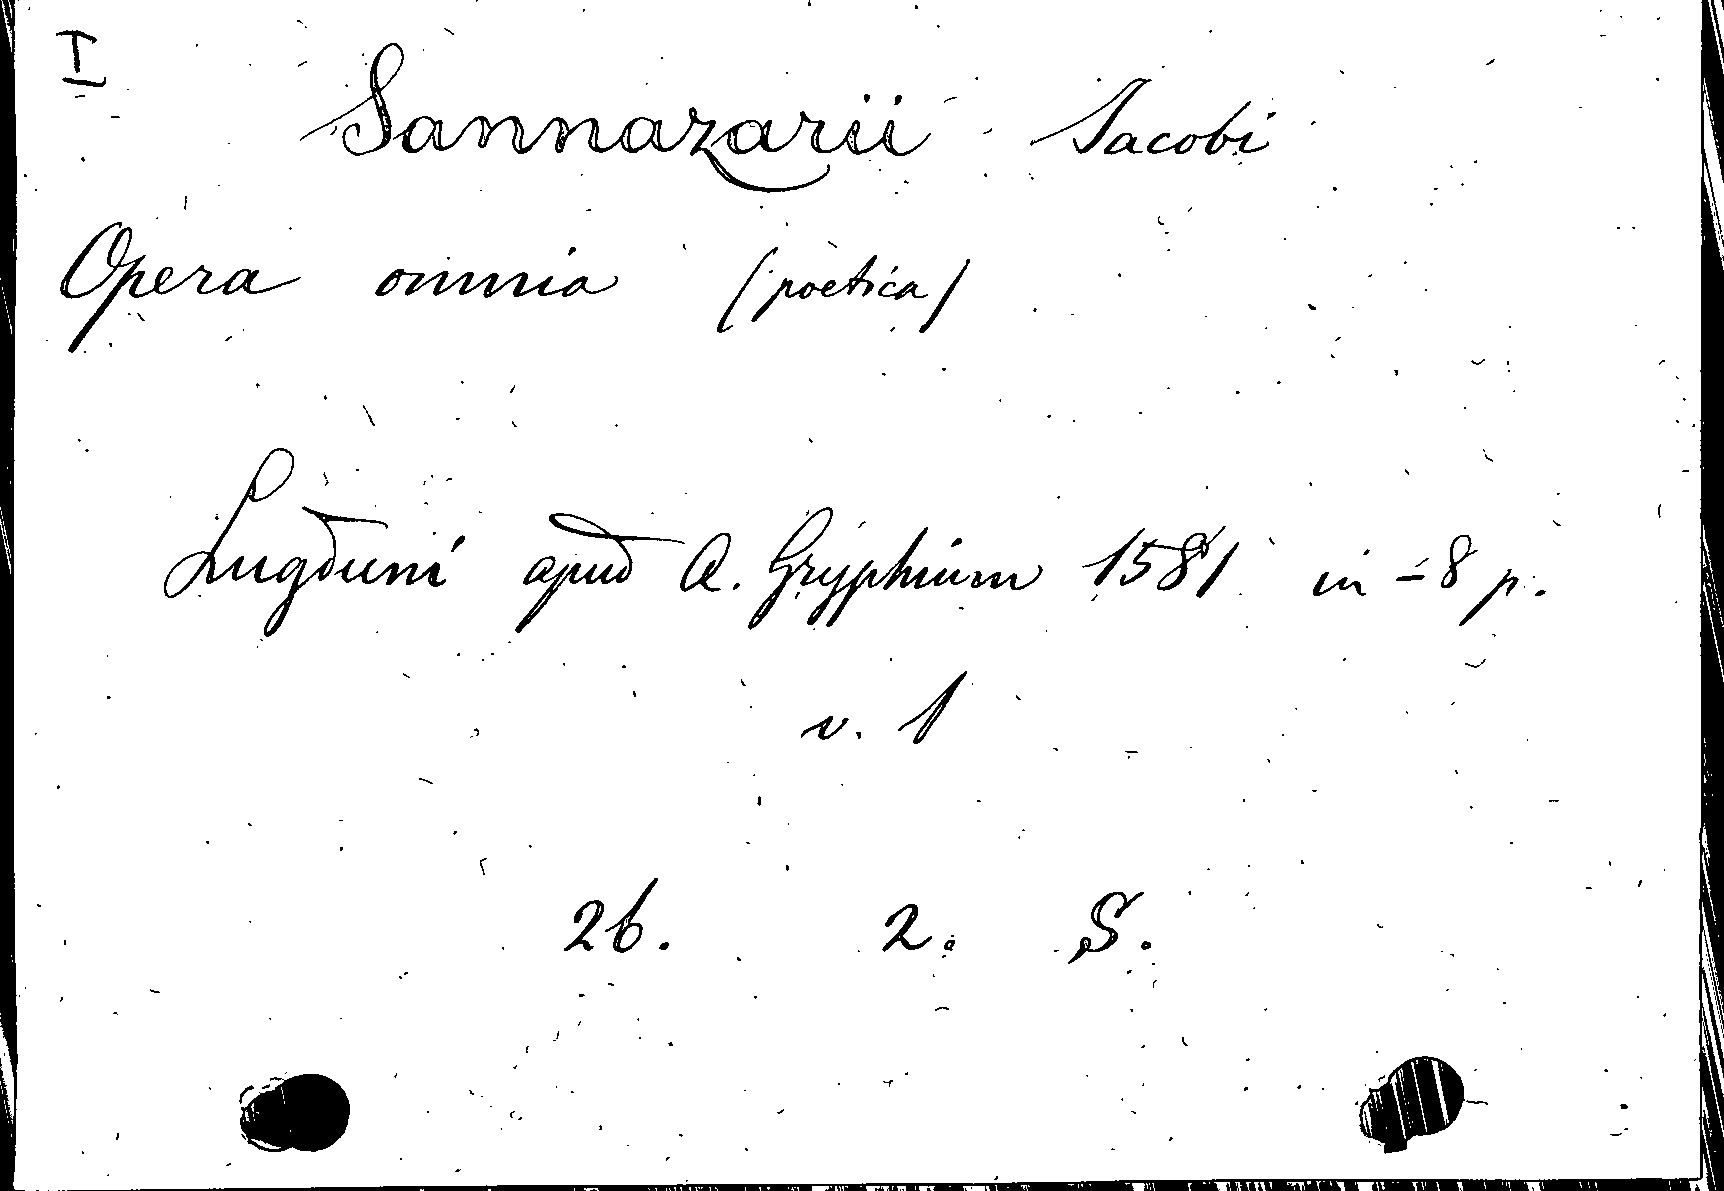 I
Sannazarii Iacobi
Opera omnia (poëtica)
Lugduni apud A. Gryphium 1581 in-8 p.
v. 1
26. 2. S.